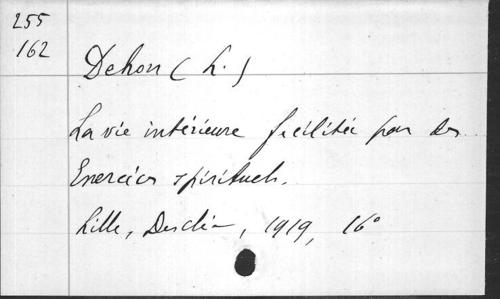 255
162
Dehon (L.)
La vie intérieure facilitée par des
Exercices spirituels.
Lille, Desclée, 1919, 16°